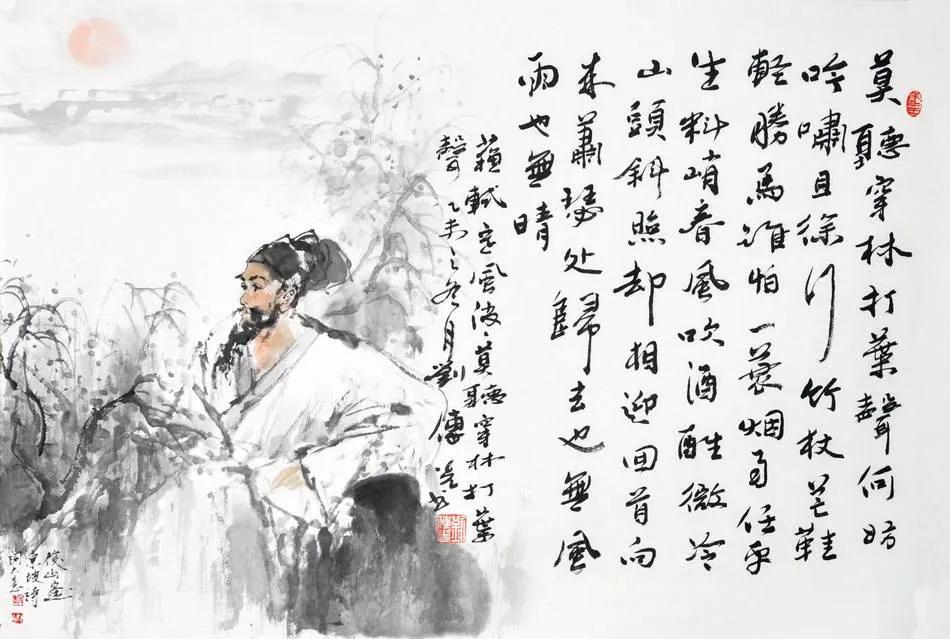 莫聽穿林打葉聲何妨
吟嘯且徐行竹杖芒鞋
輕勝馬誰怕一蓑烟雨任平
生料峭春風吹酒醒微冷
山頭斜照却相迎回首向
来蕭瑟处歸去也無風
雨也無晴
蘇軾定風波莫聽穿林打葉
聲乙未之冬月劉傳
俊山画
東坡詩
詞大意